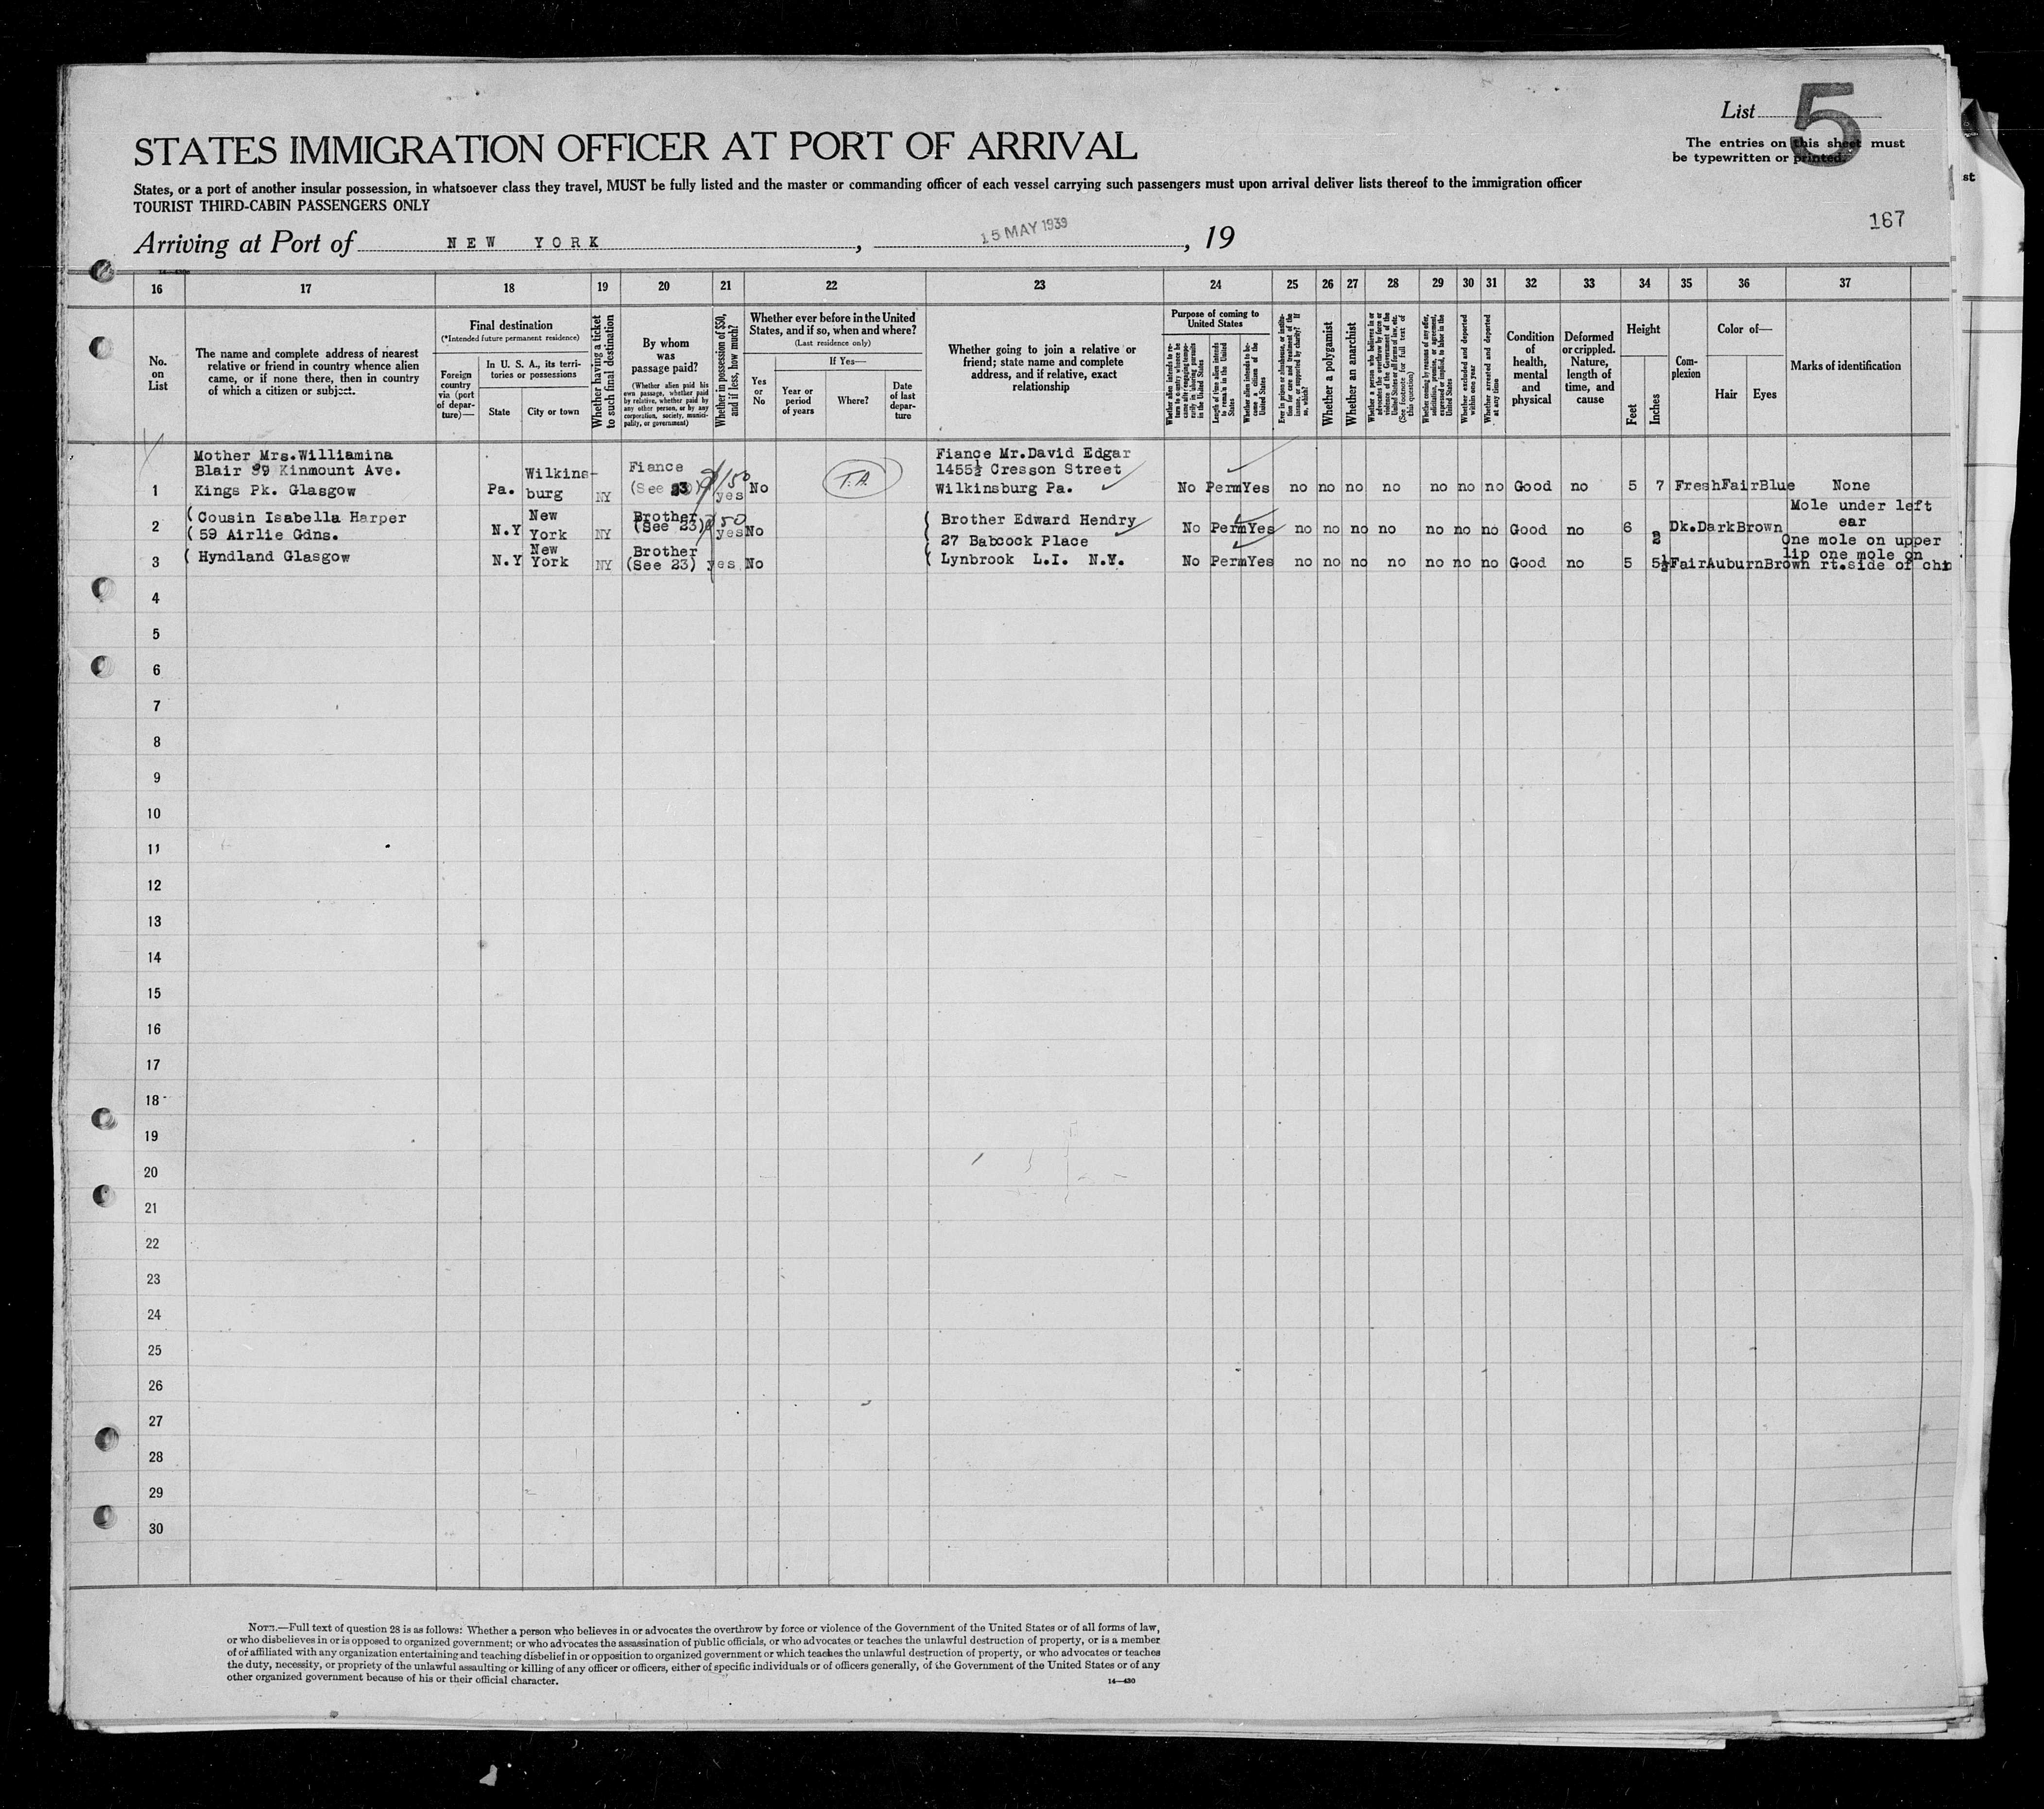 List 5
STATES IMMIGRATION OFFICER AT PORT OF ARRIVAL
The entries on this sheet must
be typewritten or printed.
st
States, or a port of another insular possession, in whatsoever class they travel, MUST be fully listed and the master or commanding officer of each vessel carrying such passengers must upon arrival deliver lists thereof to the immigration officer
TOURIST THIRD-CABIN PASSENGERS ONLY
167
Arriving at Port of NEW YORK, 15 MAY 1939, 19
16 17 18 19 20 21 22 23 24 25 26 27 28 29 30 31 32 33 34 35 36 37
No.
on
List
The name and complete address of nearest
relative or friend in country whence alien
came, or if none there, then in country
of which a citizen or subject.
Final destination
(*Intended future permanent residence)
Foreign
country
via (port
of depar-
ture)—
In U. S. A., its terri-
tories or possessions
State
City or town
Whether having a ticket
to such final destination
By whom
was
passage paid?
(Whether alien paid his
own passage, whether paid
by relative, whether paid by
any other person, or by any
corporation, society, munici-
pality, or government)
Whether in possession of $50,
and if less, how much?
Whether ever before in the United
States, and if so, when and where?
(Last residence only)
Yes
or
No
If Yes—
Year or
period
of years
Where?
Date
of last
depar-
ture
Whether going to join a relative or
friend; state name and complete
address, and if relative, exact
relationship
Purpose of coming to
United States
Whether alien intends to re-
turn to country whence he
came after engaging tempo-
rarily in laboring pursuits
in the United States
Length of time alien intends
to remain in the United
States
Whether alien intends to be-
come a citizen of the
United States
Ever in prison or almshouse, or institu-
tion for care and treatment of the
insane, or supported by charity? If
so, which?
Whether a polygamist
Whether an anarchist
Whether a person who believes in or
advocates the overthrow by force or
violence of the Government of the
United States or all forms of law, etc.
(See footnote for full text of
this question)
Whether coming by reasons of any offer,
solicitation, promise, or agreement,
expressed or implied, to labor in the
United States
Whether excluded and deported
within one year
Whether arrested and deported
at any time
Condition
of
health,
mental
and
physical
Deformed
or crippled.
Nature,
length of
time, and
cause
Height
Feet
Inches
Com-
plexion
Color of—
Hair
Eyes
Marks of identification
Mother Mrs.Williamina
Blair 89 Kinmount Ave.
Kings Pk. Glasgow
1 Pa. Wilkins-
burg NY Fiance
(See 23) 150
yes No T.A. Fiance Mr.David Edgar
1455½ Cresson Street
Wilkinsburg Pa. No Perm Yes no no no no no no no Good no 5 7 Fresh Fair Blue None
2 (Cousin Isabella Harper
(59 Airlie Gdns. N.Y New
York NY Brother
(See 23) 50
yes No (Brother Edward Hendry
27 Babcock Place No Perm Yes no no no no no no no Good no 6 Dk. Dark Brown Mole under left
ear
3 (Hyndland Glasgow N.Y New
York NY Brother
(See 23) yes No (Lynbrook L.I. N.Y. No Perm Yes no no no no no no no Good no 5 5½ Fair Auburn Brown One mole on upper
lip one mole on
rt.side of chi
4
5
6
7
8
9
10
11
12
13
14
15
16
17
18
19
20
21
22
23
24
25
26
27
28
29
30
NOTE.—Full text of question 28 is as follows: Whether a person who believes in or advocates the overthrow by force or violence of the Government of the United States or of all forms of law,
or who disbelieves in or is opposed to organized government; or who advocates the assassination of public officials, or who advocates or teaches the unlawful destruction of property, or is a member
of or affiliated with any organization entertaining and teaching disbelief in or opposition to organized government or which teaches the unlawful destruction of property, or who advocates or teaches
the duty, necessity, or propriety of the unlawful assaulting or killing of any officer or officers, either of specific individuals or of officers generally, of the Government of the United States or of any
other organized government because of his or their official character.
14—430